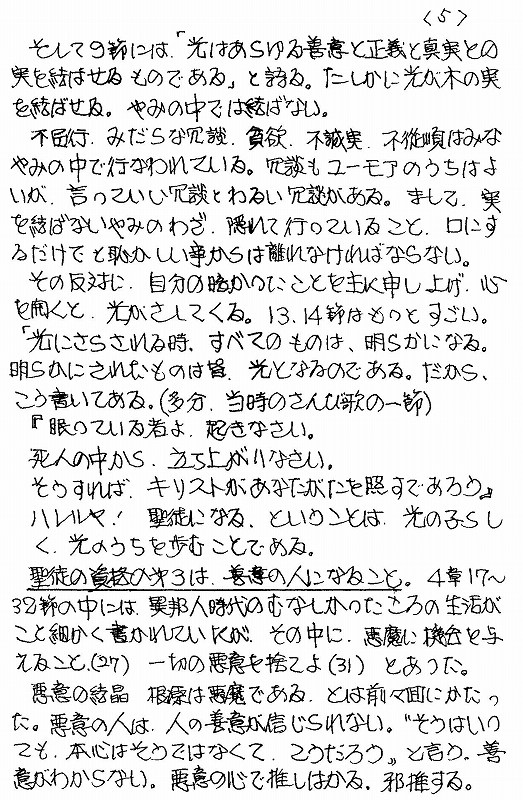 <5>
そして9節には、「光はあらゆる善意と正義と真実との
実を結ばせるものである」と語る。たしかに光が木の実
を結ばせる。やみの中では結ばない。
不品行、みだらな冗談、貪欲、不誠実、不従順はみな
やみの中で行なわれている。冗談もユーモアのうちはよ
いが、言っていい冗談とわるい冗談がある。まして、実
を結ばないやみのわざ、隠れて行っていること、口にす
るだけでも恥かしい事からは離れなければならない。
その反対に、自分の暗かったことを主に申し上げ、心
を開くと、光がさしてくる。13、14節はもっとすごい。
「光にさらされる時、すべてのものは、明らかになる。
明らかにされたものは皆、光となるのである。だから、
こう書いてある。(多分、当時のさんび歌の一節)
『眠っている者よ、起きなさい。
死人の中から、立ち上がりなさい。
そうすれば、キリストがあなたがたを照すであろう』
ハレルヤ! 聖徒になる、ということは、光の子らし
く、光のうちを歩むことである。
聖徒の資格の第3は、善意の人になること。4章17〜
32節の中には、異邦人時代のむなしかったころの生活が
こと細かく書かれていたが、その中に、悪魔に機会を与
えること、(27) 一切の悪意を捨てよ(31) とあった。
悪意の結晶 根源は悪魔である、とは前々回にかたっ
た。悪意の人は、人の善意が信じられない。"そうはいっ
ても、本心はそうではなくて、こうだろう』と言う。善
意がわからない。悪意の心で推しはかる、邪推する。